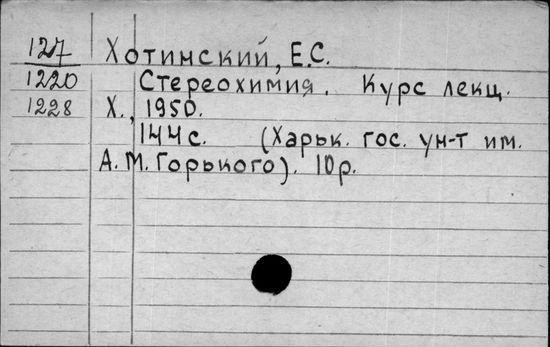 127 Хотинский, Е.С.
1220 Стереохимия. Курс лекц.
1228 Х., 1950.
144с. (Харьк. гос. ун-т им.
А.М. Горького). 10р.